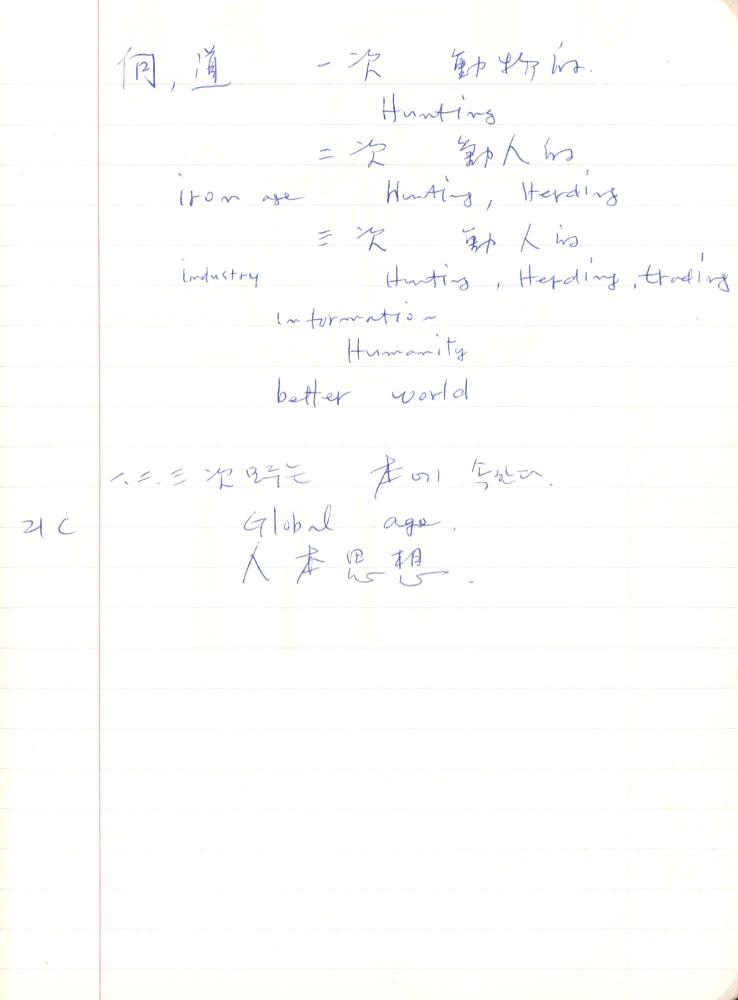 何, 道 一次 動物的.
Hunting
二次 動人的
iron age Hunting, Herding
三次 動人的
industry Hunting, Herding, trading
Information
Humanity
better world
一.二.三次 모두는 本에 속한다.
21 C Global age.
人本思想.